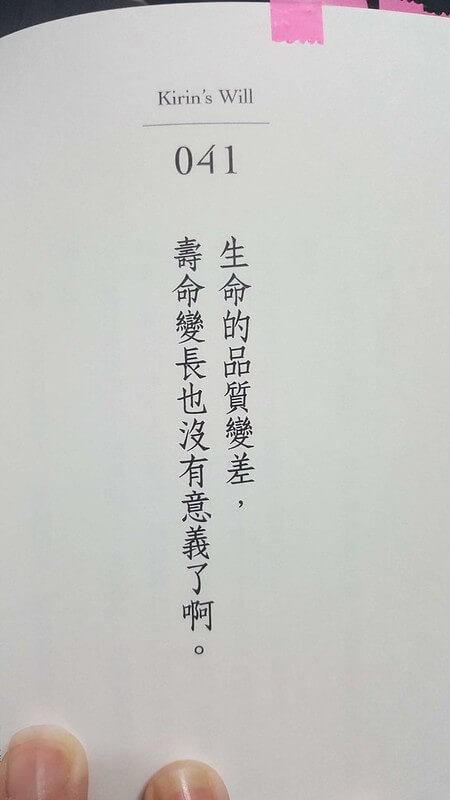 Kirin's Will
041
生命的品質變差，
壽命變長也沒有意義了啊。